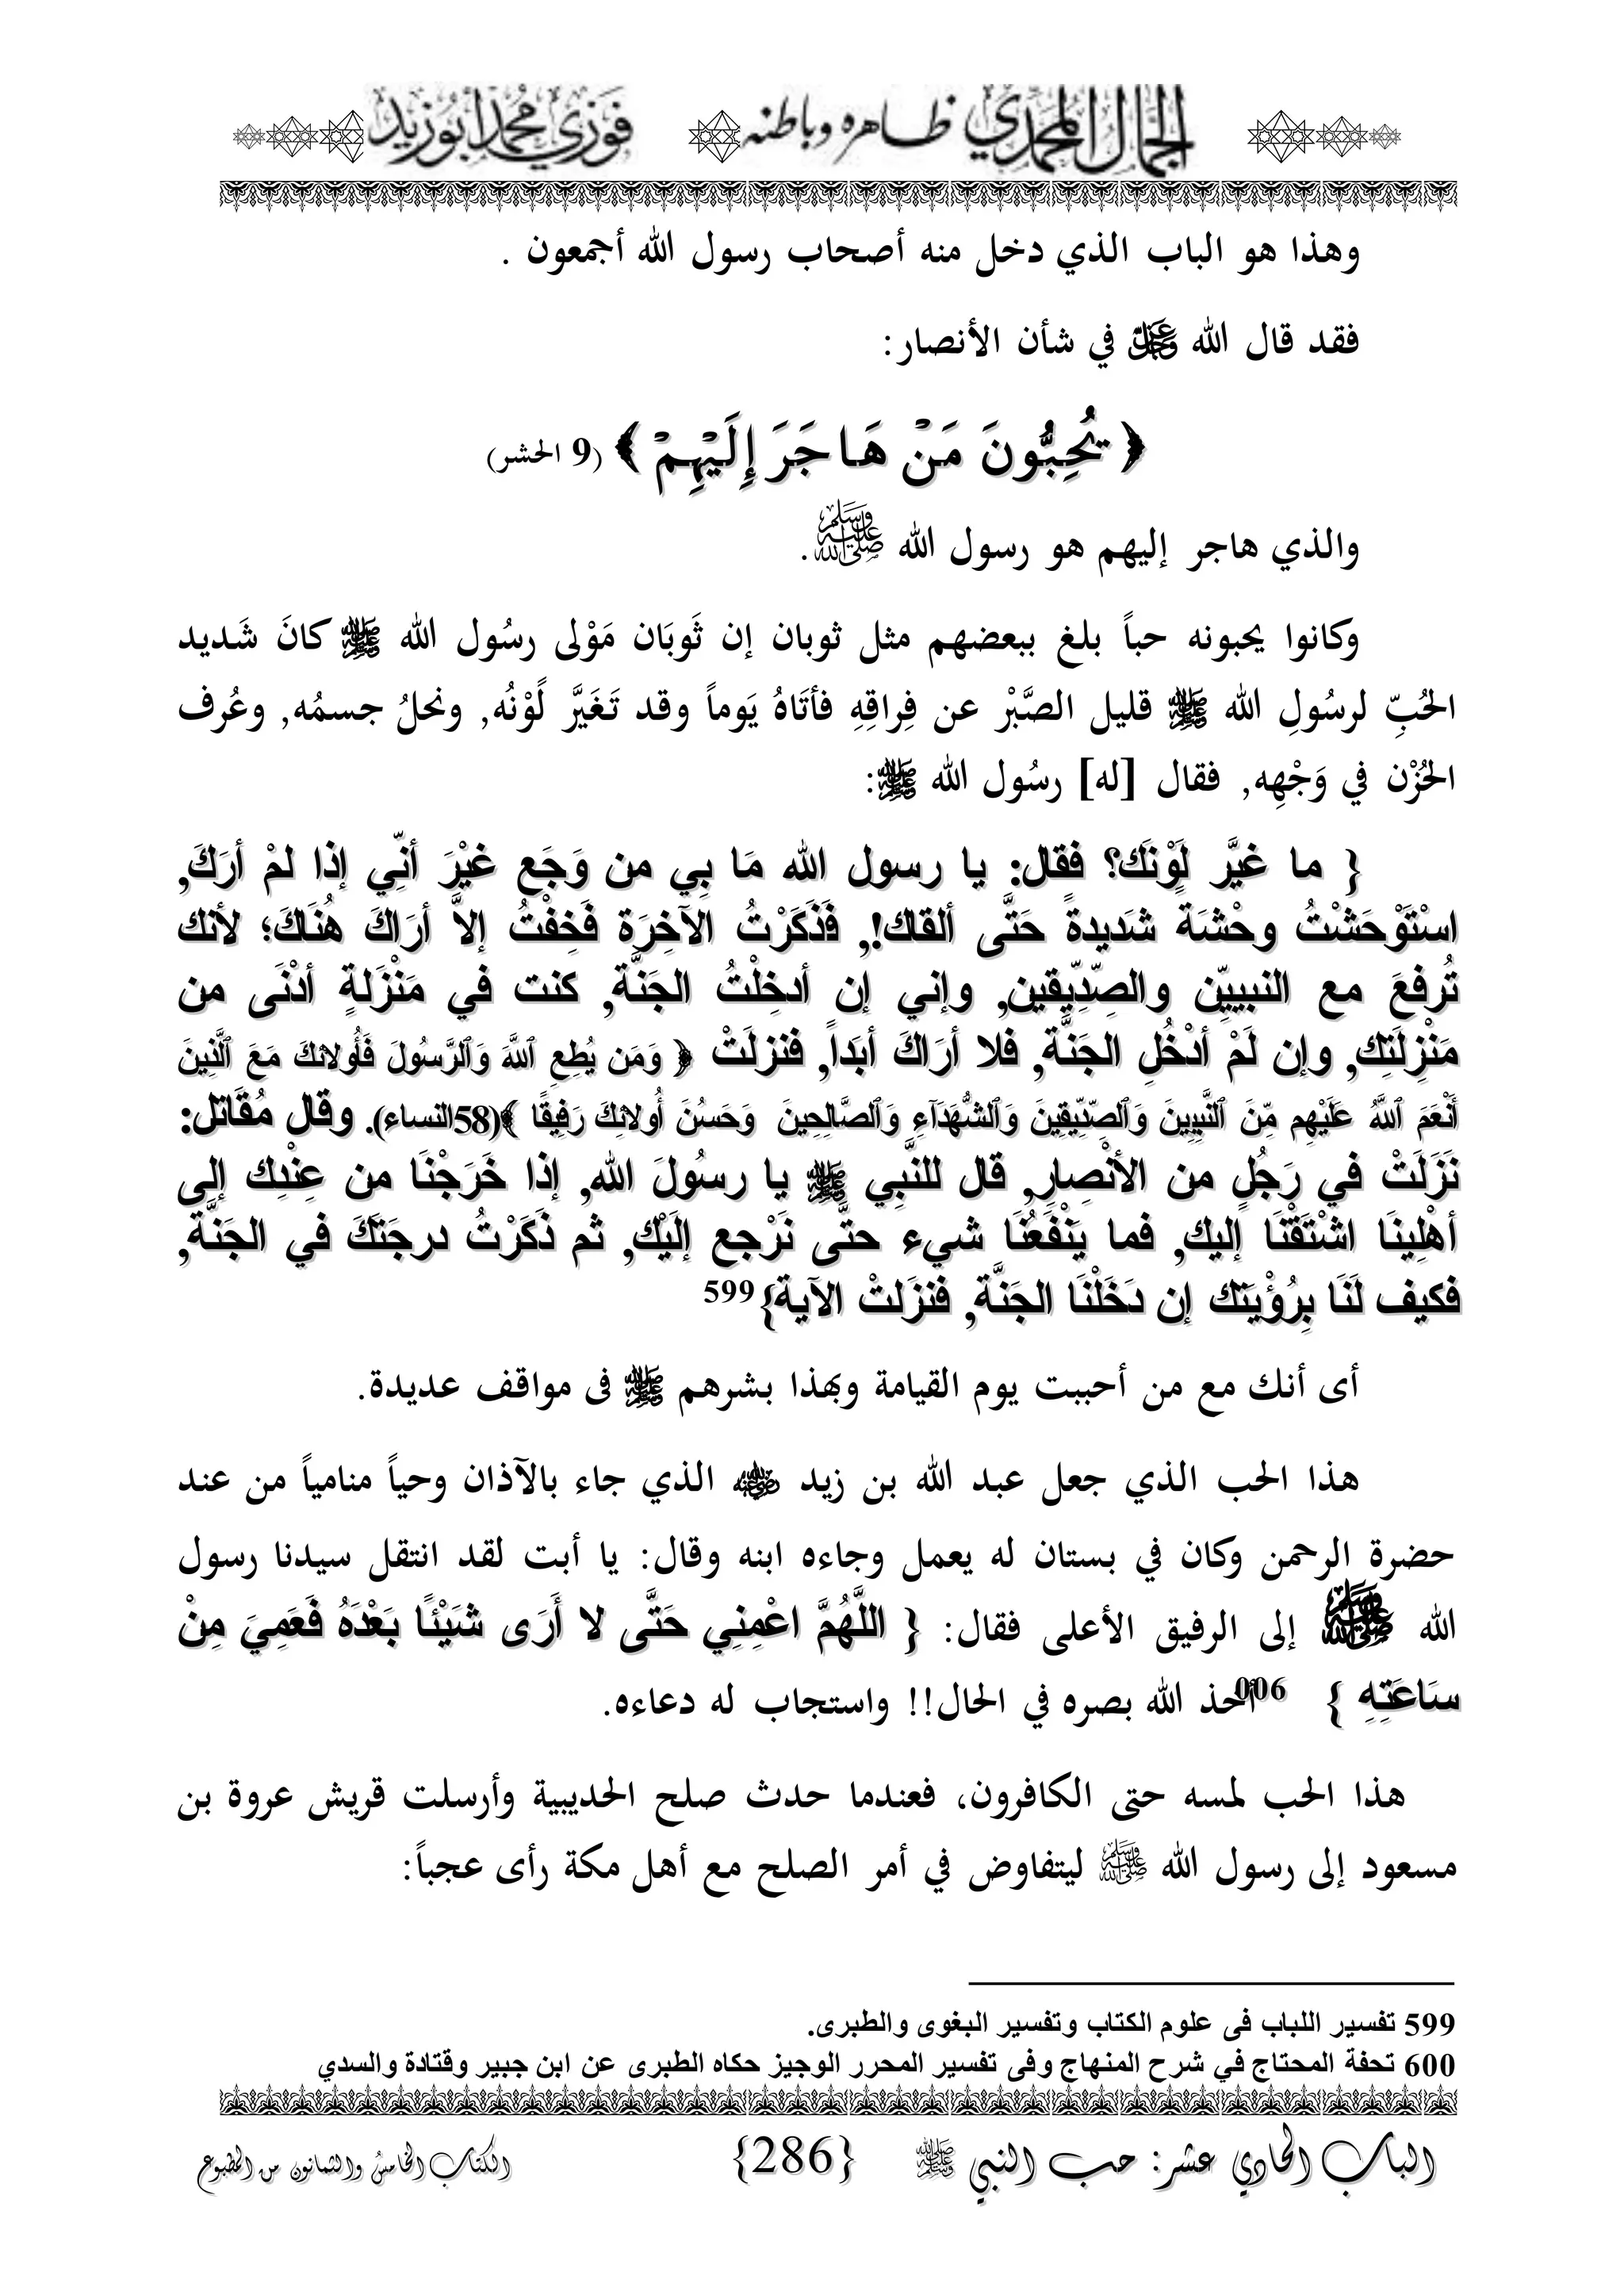 الجمال المحمدي ظاهره وباطنه فوزي محمد أبوزيد
وهذا هو الباب الذي دخل منه أصحاب رسول الله أجمعون .
فقد قال الله عز وجل في شأن الأنصار:
﴿ يُحِبُّونَ مَنْ هَاجَرَ إِلَيْهِمْ ﴾ (9 الحشر)
والذي هاجر إليهم هو رسول الله ﷺ.
وكانوا يحبونه حباً بلغ ببعضهم مثل ثوبان إن ثَوبَان مَوْلى رسُول الله ﷺ كانَ شَديد
الحُبِّ لرسُولِ الله ﷺ قليل الصَّبْر عن فِراقِهِ فأتَاهُ يَوماً وقد تَغَيَّر لَوْنُه, ونحلُ جسمُه, وعُرف
الحُزْن في وَجْهِه, فقال [له] رسُول الله ﷺ:
{ ما غيَّر لَوْنَك؟ فقال: يا رسول الله مَا بِي من وَجَع غيْرَ أنِّي إذا لمْ أرَكَ,
اسْتَوْحَشْتُ وحْشَةً شَديدةً حَتَّى ألقاك!, فَذَكَرْتُ الآخِرَة فَخِفْتُ إلاَّ أرَاكَ هُنَاكَ؛ لأنك
تُرفعَ مع النبييِّن والصِّدِّيقين, وإني إن أدخِلْتُ الجَنَّة, كنت في مَنْزَلةٍ أدْنَى من
مَنْزِلَتِك, وإن لَمْ أدْخُلِ الجَنَّة, فلا أرَاكَ أبَداً, فنزلَتْ ﴿ وَمَن يُطِعِ ٱللَّهَ وَٱلرَّسُولَ فَأُوْلائكَ مَعَ ٱلَّذِينَ
أَنْعَمَ ٱللَّهُ عَلَيْهِم مِّنَ ٱلنَّبِيِينَ وَٱلصِّدِّيقِينَ وَٱلشُّهَدَآءِ وَٱلصَّالِحِينَ وَحَسُنَ أُولائِكَ رَفِيقًا ﴾(58النساء). وقال مُقَاتل:
نَزَلَتْ في رَجُلٍ من الأنْصِارِ, قال للنَّبِي ﷺ يا رسُولَ الله, إذا خَرَجْنَا من عِنْدِك إلى
أهْلِينَا اشْتَقْنَا إليك, فما يَنْفَعُنَا شيء حتَّى نَرْجع إلَيْك, ثم ذَكَرْتُ درجَتَكَ في الجَنَّة,
فكيف لَنَا بِرُؤْيَتك إن دَخَلْنَا الجَنَّة, فنزَلتْ الآية}599
أى أنك مع من أحببت يوم القيامة وبهذا بشرهم ﷺ فى مواقف عديدة.
هذا الحب الذي جعل عبد الله بن زيد رضي الله عنه الذي جاء بالآذان وحياً منامياً من عند
حضرة الرحمن وكان في بستان له يعمل وجاءه ابنه وقال: يا أبت لقد انتقل سيدنا رسول
الله ﷺ إلى الرفيق الأعلى فقال: { اللَّهُمَّ اعْمِنِي حَتَّى لا أَرَى شَيْئًا بَعْدَهُ فَعَمِيَ مِنْ
سَاعَتِهِ } 006 أخذ الله بصره في الحال!! واستجاب له دعاءه.
هذا الحب لمسه حتى الكافرون، فعندما حدث صلح الحديبية وأرسلت قريش عروة بن
مسعود إلى رسول الله ﷺ ليتفاوض في أمر الصلح مع أهل مكة رأى عجباً:
599 تفسير اللباب فى علوم الكتاب وتفسير البغوى والطبرى.
600 تحفة المحتاج في شرح المنهاج وفى تفسير المحرر الوجيز حكاه الطبرى عن ابن جبير وقتادة والسدي
الباب الحادي عشر: حب النبي ﷺ {286} الكتاب الخامس والثمانون من المطبوع